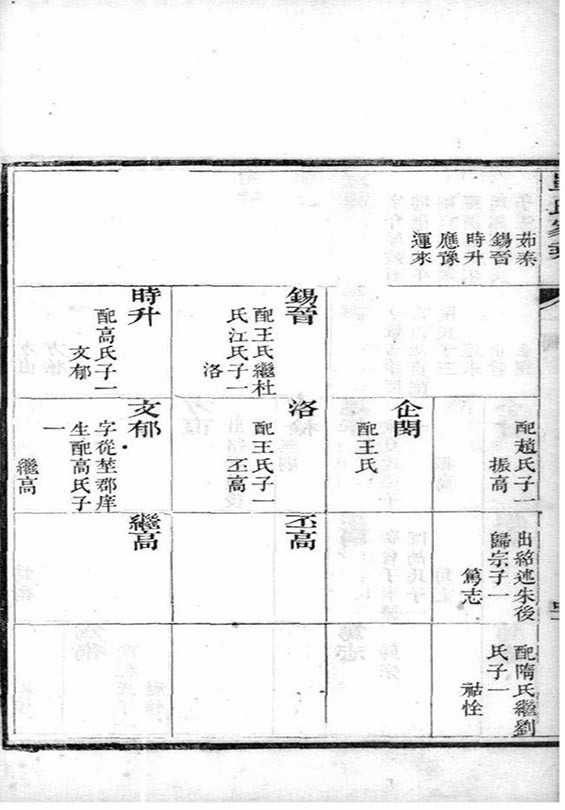 茹秦
錫晉
時升
應豫
運來
配趙氏子一
振高
出紹述朱後
歸宗子一
篤志
配隋氏繼劉
氏子一
祜恮
企閔
配王氏
錫晉
配王氏繼杜
氏江氏子一
洛
洛
配王氏子一
丕高
丕高
時升
配高氏子一
文郁
文郁
字從埜郡庠
生配高氏子
一
繼高
繼高